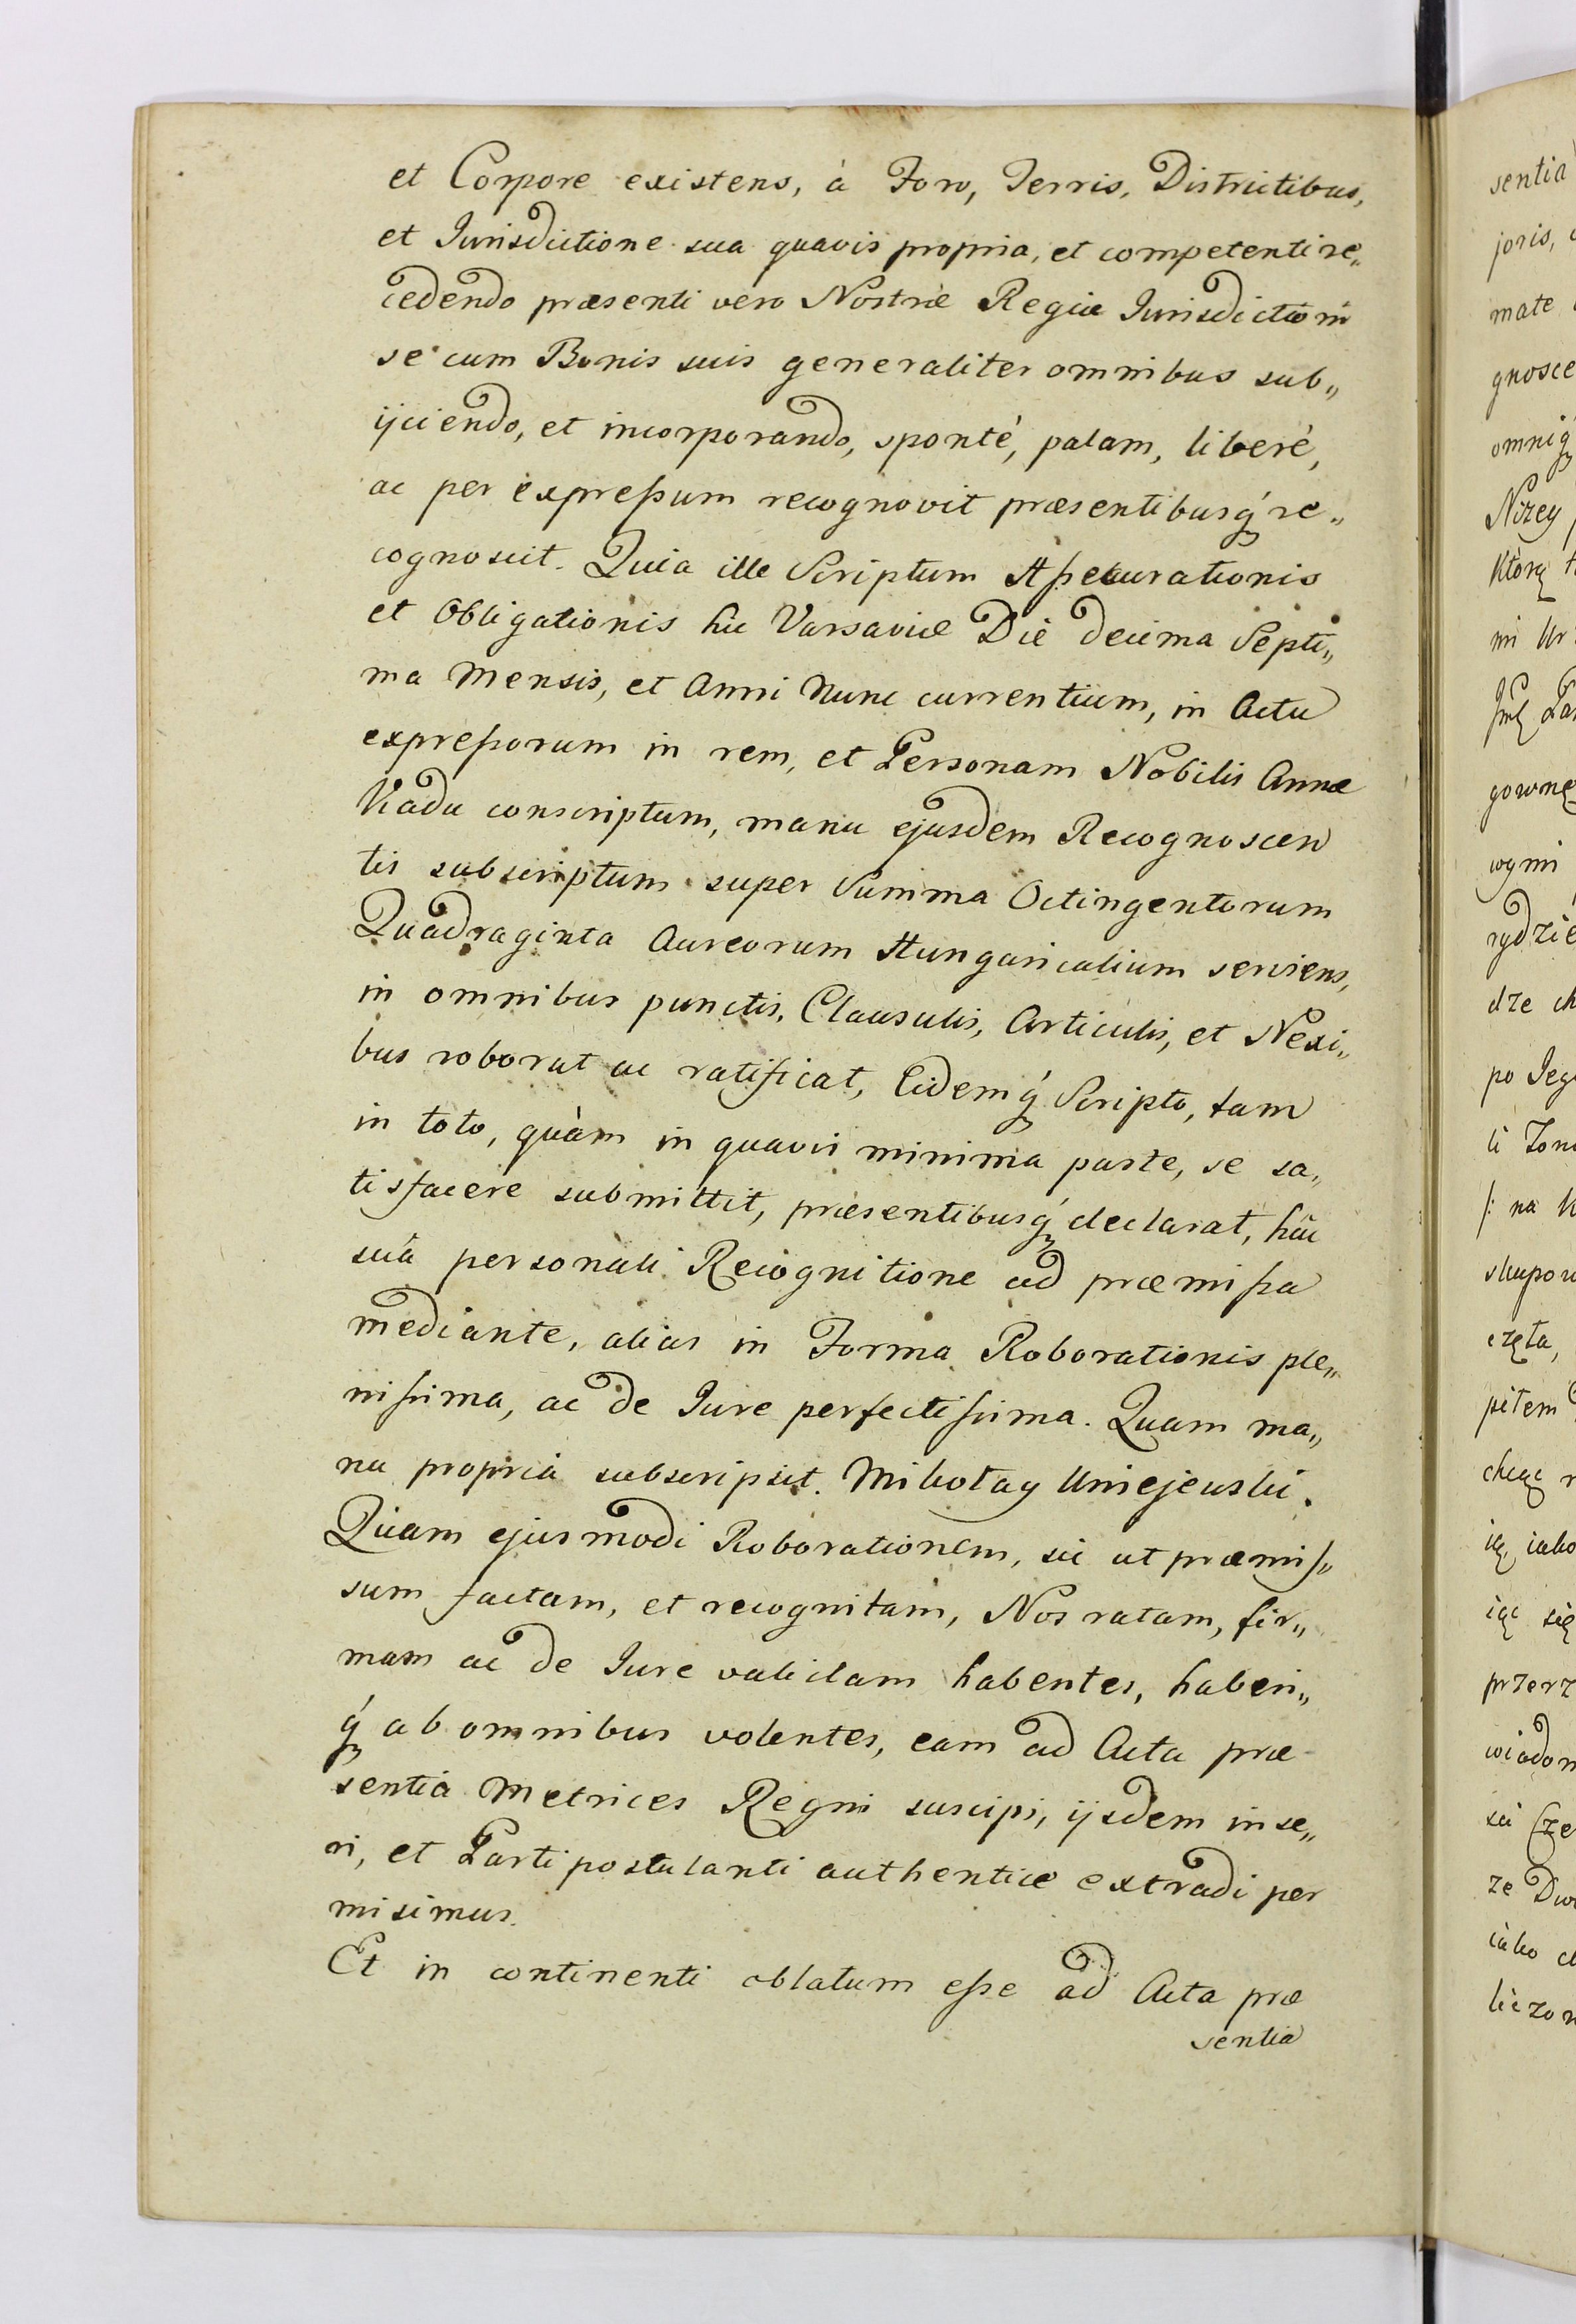 et Corpore existens, à Foro, Terris, Districtibus,
et Jurisdictione sua quavis propria, et competenti re„
cedendo præsenti vero Nostræ Regiæ Jurisdictioni
se cum Bonis suis generaliter omnibus sub„
ijciendo, et incorporando, sponté, palam, liberé,
ac per expreßum recognovit præsentibusq́ re„
cognoscit. Quia ille Scriptum Aßecurationis
et Obligationis hic Varsaviæ Die decima Septi„
ma Mensis, et Anni Nunc currentium, in Actu
expreßorum in rem, et Personam Nobilis Annæ
Kadu conscriptum, manu ejusdem Recognoscen
tis subscriptum super Summa Octingentorum
Quadraginta Aureorum Hungaricalium serviens,
in omnibus punctis, Clausulis, Articulis, et Nexi„
bus roborat ac ratificat, Eidemq́ Scripto, tam
in toto, quàm in quavis minima parte, se sa„
tisfacere submittit, præsentibusq́ declarat, hac
suá personali Recognitione ad præmißa
mediante, alias in Forma Roborationis ple„
nißima, ac de Jure perfectißima. Quam ma„
nu propriá subscripsit. Mikołay Uniejewski.
Quam ejusmodi Roborationem, sic ut præmis„
sum factam, et recognitam, Nos ratam, fir„
mam ac de Jure validam habentes, haberi„
q́ ab omnibus volentes, eam ad Acta præ
sentia Metrices Regni suscipi, ijsdem inse„
ri, et Parti postulanti authenticè extradi per
misimus.
Et in continenti oblatum eße ad Acta præ
sentia
sentia
joris,
mate
gnosce
omniq́
Nizey
Którą
mi Ur
gowne
wymi
rydzie
dze
po Jego
li
/: na
skupow
częta,
pitem
chcąc
ię, iako
iąc się
przerz
wiadom
ze
iako
liczon